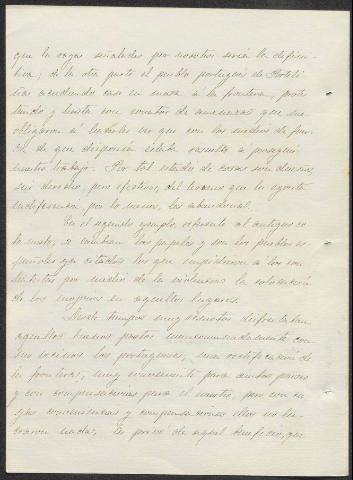 que la raya señalada por nosotros seria la defini-
tiva; de la otra parte el pueblo portugués de
acudiendo casi en masa à la frontera, protes
tando y hasta con amenazas que me
obligaron à hacerle ver que con los medios de fuer
za de que disponia estaba resuelto à proseguir
nuestro trabajo. Por tal estado de cosas son dueños,
sin derecho, pero efectivos, del terreno que la
indefension, por lo menos, les abandonó.
En el segundo ejemplo, referente al antiguo co
to mixto, se cambian los papeles y son los pueblos es
pañoles ya citados los que impidieron à los con
trarios por medio de la violencia la colocacion
de los mojones en aquellos lugares.
Desde tiempos muy remotos disfrutaban
aquellos buenos pastos mancomunadamente con
sus vecinos los portugueses, una rectificacion de
la frontera, muy conveniente para ambos paises
y con compensaciones para el nuestro, pero con cu
yas conveniencias y compensaciones ellos no lu
craron nada, les privó de aquel beneficio, que